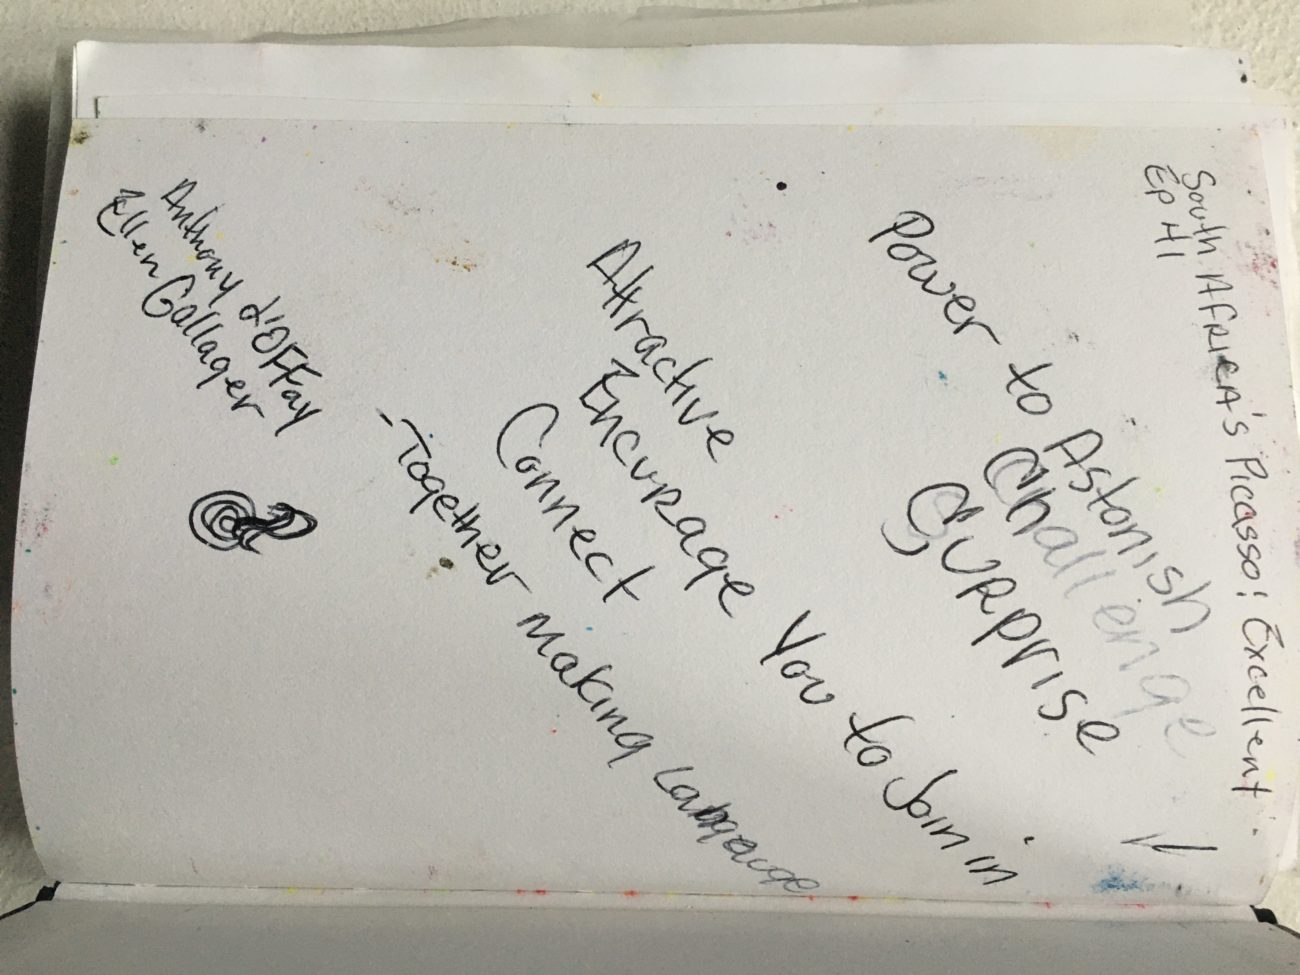 South AFRICA's Picasso! Excellent.
Ep H1
Power to Astonish
Challenge
SURPRISE
Attractive
Encurage You to Join in
Connect
-Together making Langauge
Anthony d'OFFay
Ellen Gallager